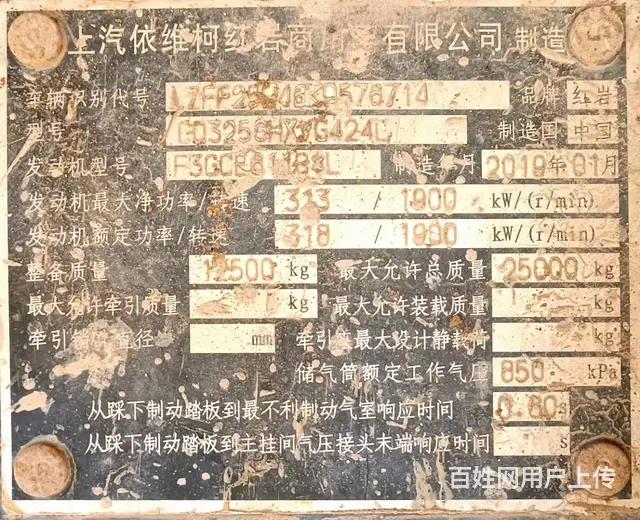 上汽依维柯红岩商用车有限公司 制造
车辆识别代号 品牌 红岩
型号 制造国 中国
发动机型号 制造年月 2019年01月
发动机最大净功率/转速 313 / 1900 kW/(r/min)
发动机额定功率/转速 318 / 1900 kW/(r/min)
整备质量 12500 kg 最大允许总质量 25000 kg
最大允许牵引质量 kg 最大允许装载质量 kg
牵引 径 mm 牵引 最大设计静载荷 kg
储气筒额定工作气压 850 kPa
从踩下制动踏板到最不利制动气室响应时间 0.60s
从踩下制动踏板到主挂间气压接头末端响应时间 s
百姓网用户上传